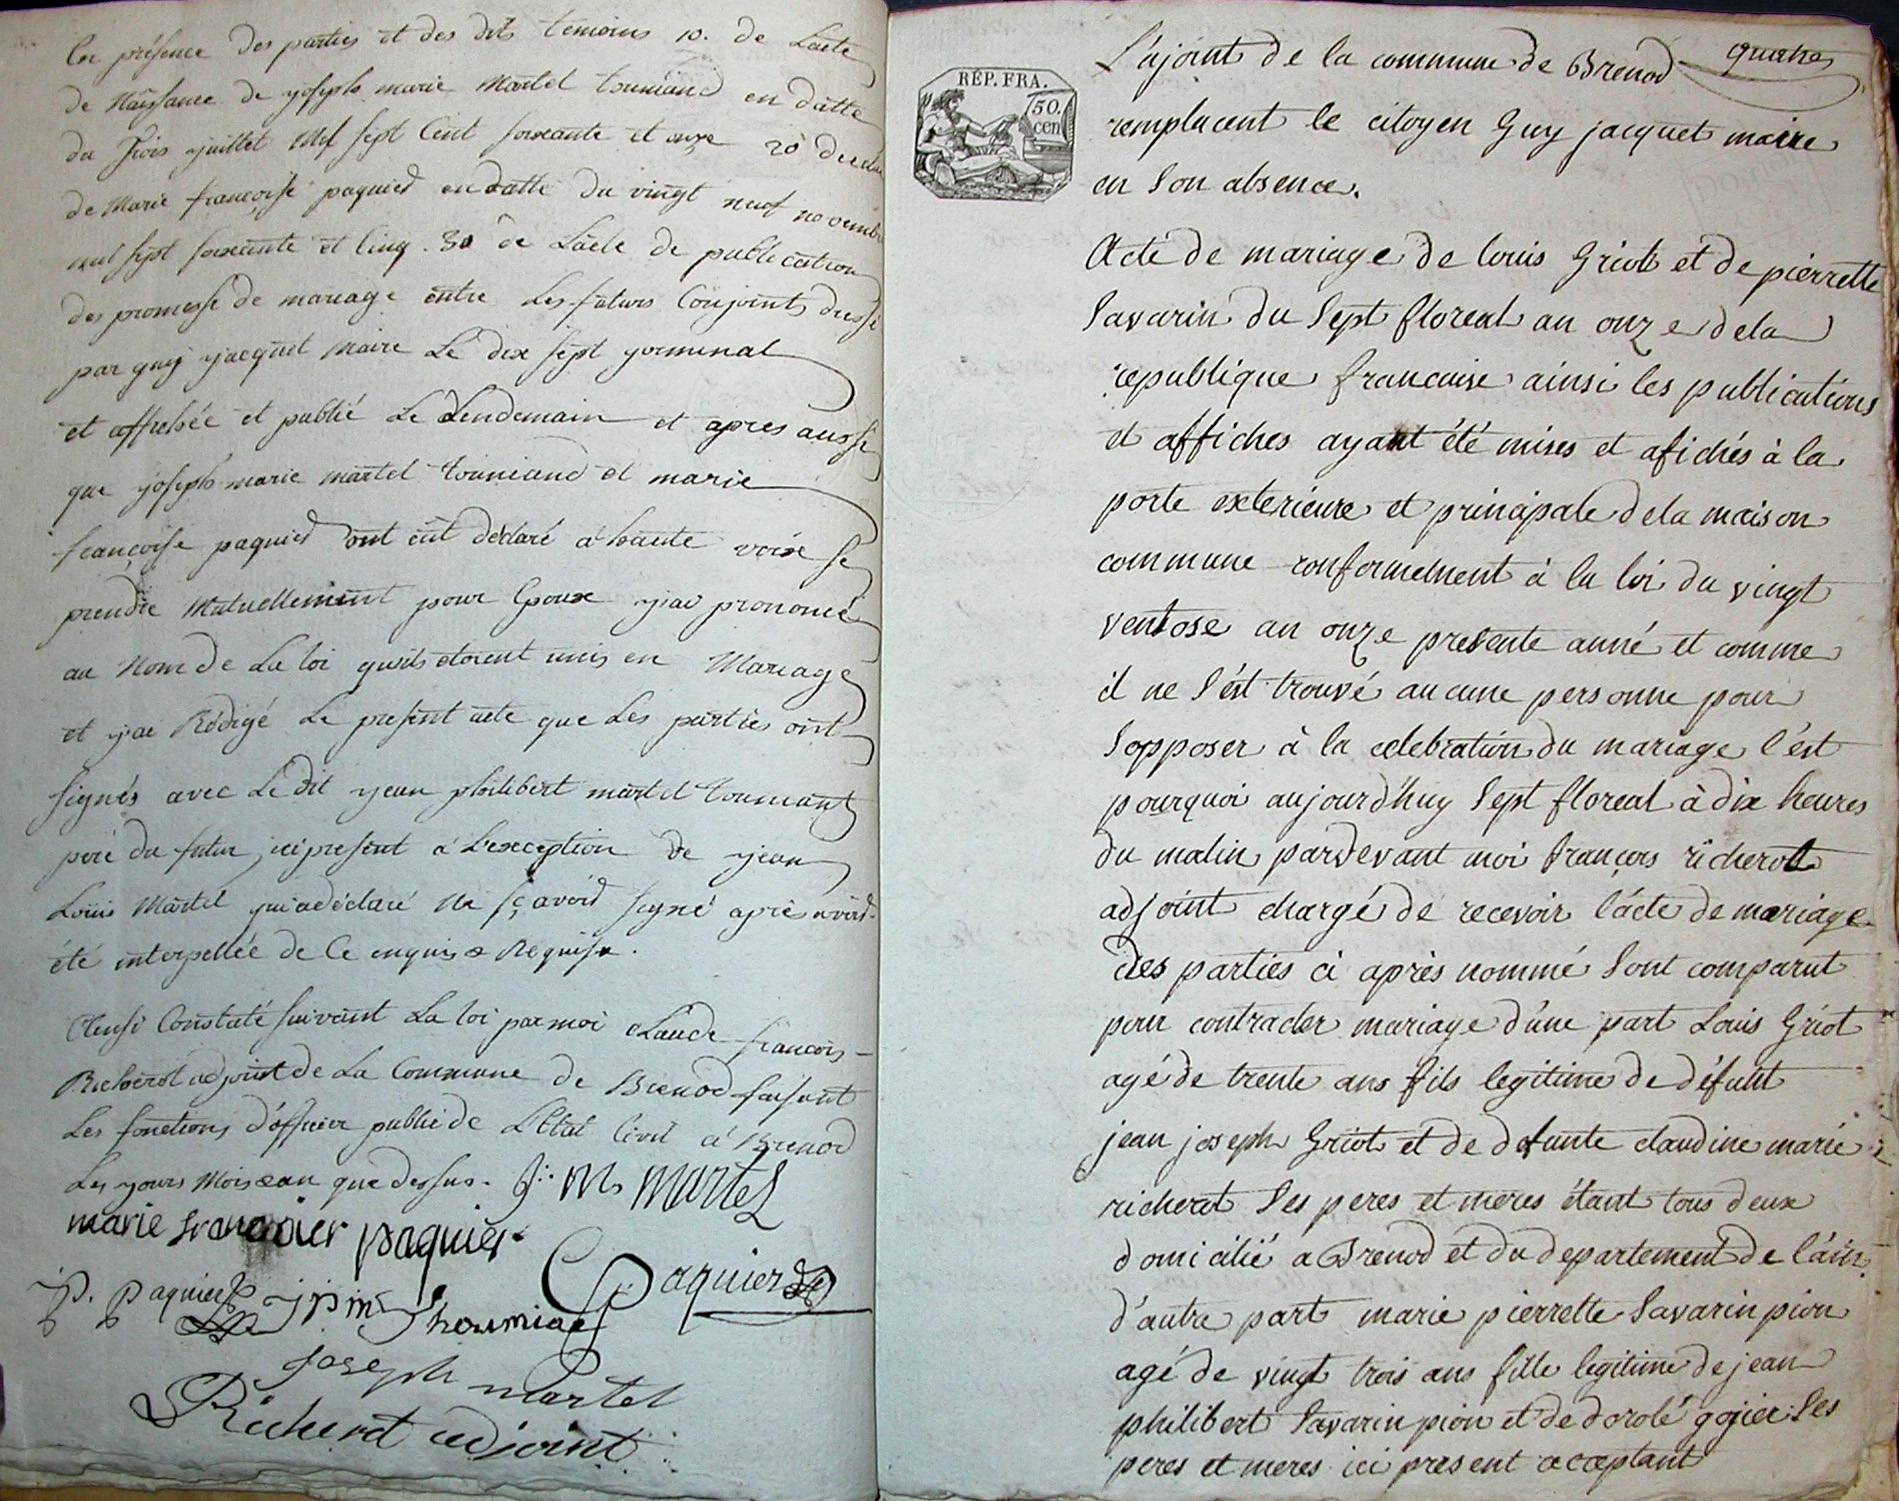 En présence des parties et des dits temoins 1o. de Lacte
de Naissance de yoseph marie Martel toumiand en datte
du trois yuillet Mil sept Cent soixante et onze 2o de celui
de Marie francoise paquier en datte du vingt neuf novembre
mil sept soixante et Cinq. 3o de Lacte de publication
des promesse de mariage entre Les futurs Conjoints dressé
par guy yacquet Maire Le dix sept germinal
et affichée et publié Le Lendemain et apres aussi
que yoseph marie martel toumiand et marie
francoise paquier ont eût déclaré a haute voixe se
prendre Mutuellement pour Epoux y'iai prononcé
au Nom de La loi quils etoient unis en Mariage
et y'ai Rédigé Le present acte que Les parties ont
signés avec Le dit yean philibert martel toumiant
pere du futur ici present a L'exception de yean
Louis Martel qui a déclaré Ne sçavoir signé après avoir
été interpellée de Ce enquis & Requise.
Ainsi Constaté suivant La loi par moi Claude francois
Richerot adjoint de La Commune de Brenod faisant
Les fonctions d'officier public de L'Etat Civil a Brenod
Les yours Mois & an que dessus. J: M. Martel
marie francoier paquier
P. paquier jpm thoumiae Paquier
Joseph martel
Richerot adjoint
quatre
L'ajoint de la commune de Brenod
REP. FRA.
50.
cen
remplacent le citoyen Guy jacquet maire
en son absence.
Acte de mariage de louis Griot et de pierrette
Savarin du Sept floreal an onze de la
republique francaise ainsi les publications
et affiches ayant été mises et afichés à la
porte exterieure et principale de la maison
commune conformement à la loi du vingt
ventose an onze presente anné et comme
il ne s'ést trouvé aucune personne pour
s'opposer à la celebration du mariage c'ést
pourquoi aujourd'huy Sept floreal à dix heures
du matin pardevant moi françois richerot
adjoint chargé de recevoir l'ácte de mariage
des parties ci après nommé Sont comparut
pour contracter mariage d'une part Louis Griot
agé de trente ans fils legitime de défunt
jean joseph Griot et de defunte claudine marie
richerot Ses peres et meres étant tous deux
domicilié a Brenod et du departement de l'áin.
d'autre part marie pierrette Savarin pion
agé de vingt trois ans fille legitime de jean
philibert Savarin pion et de doroté gojier Ses
peres et meres ici present acceptant